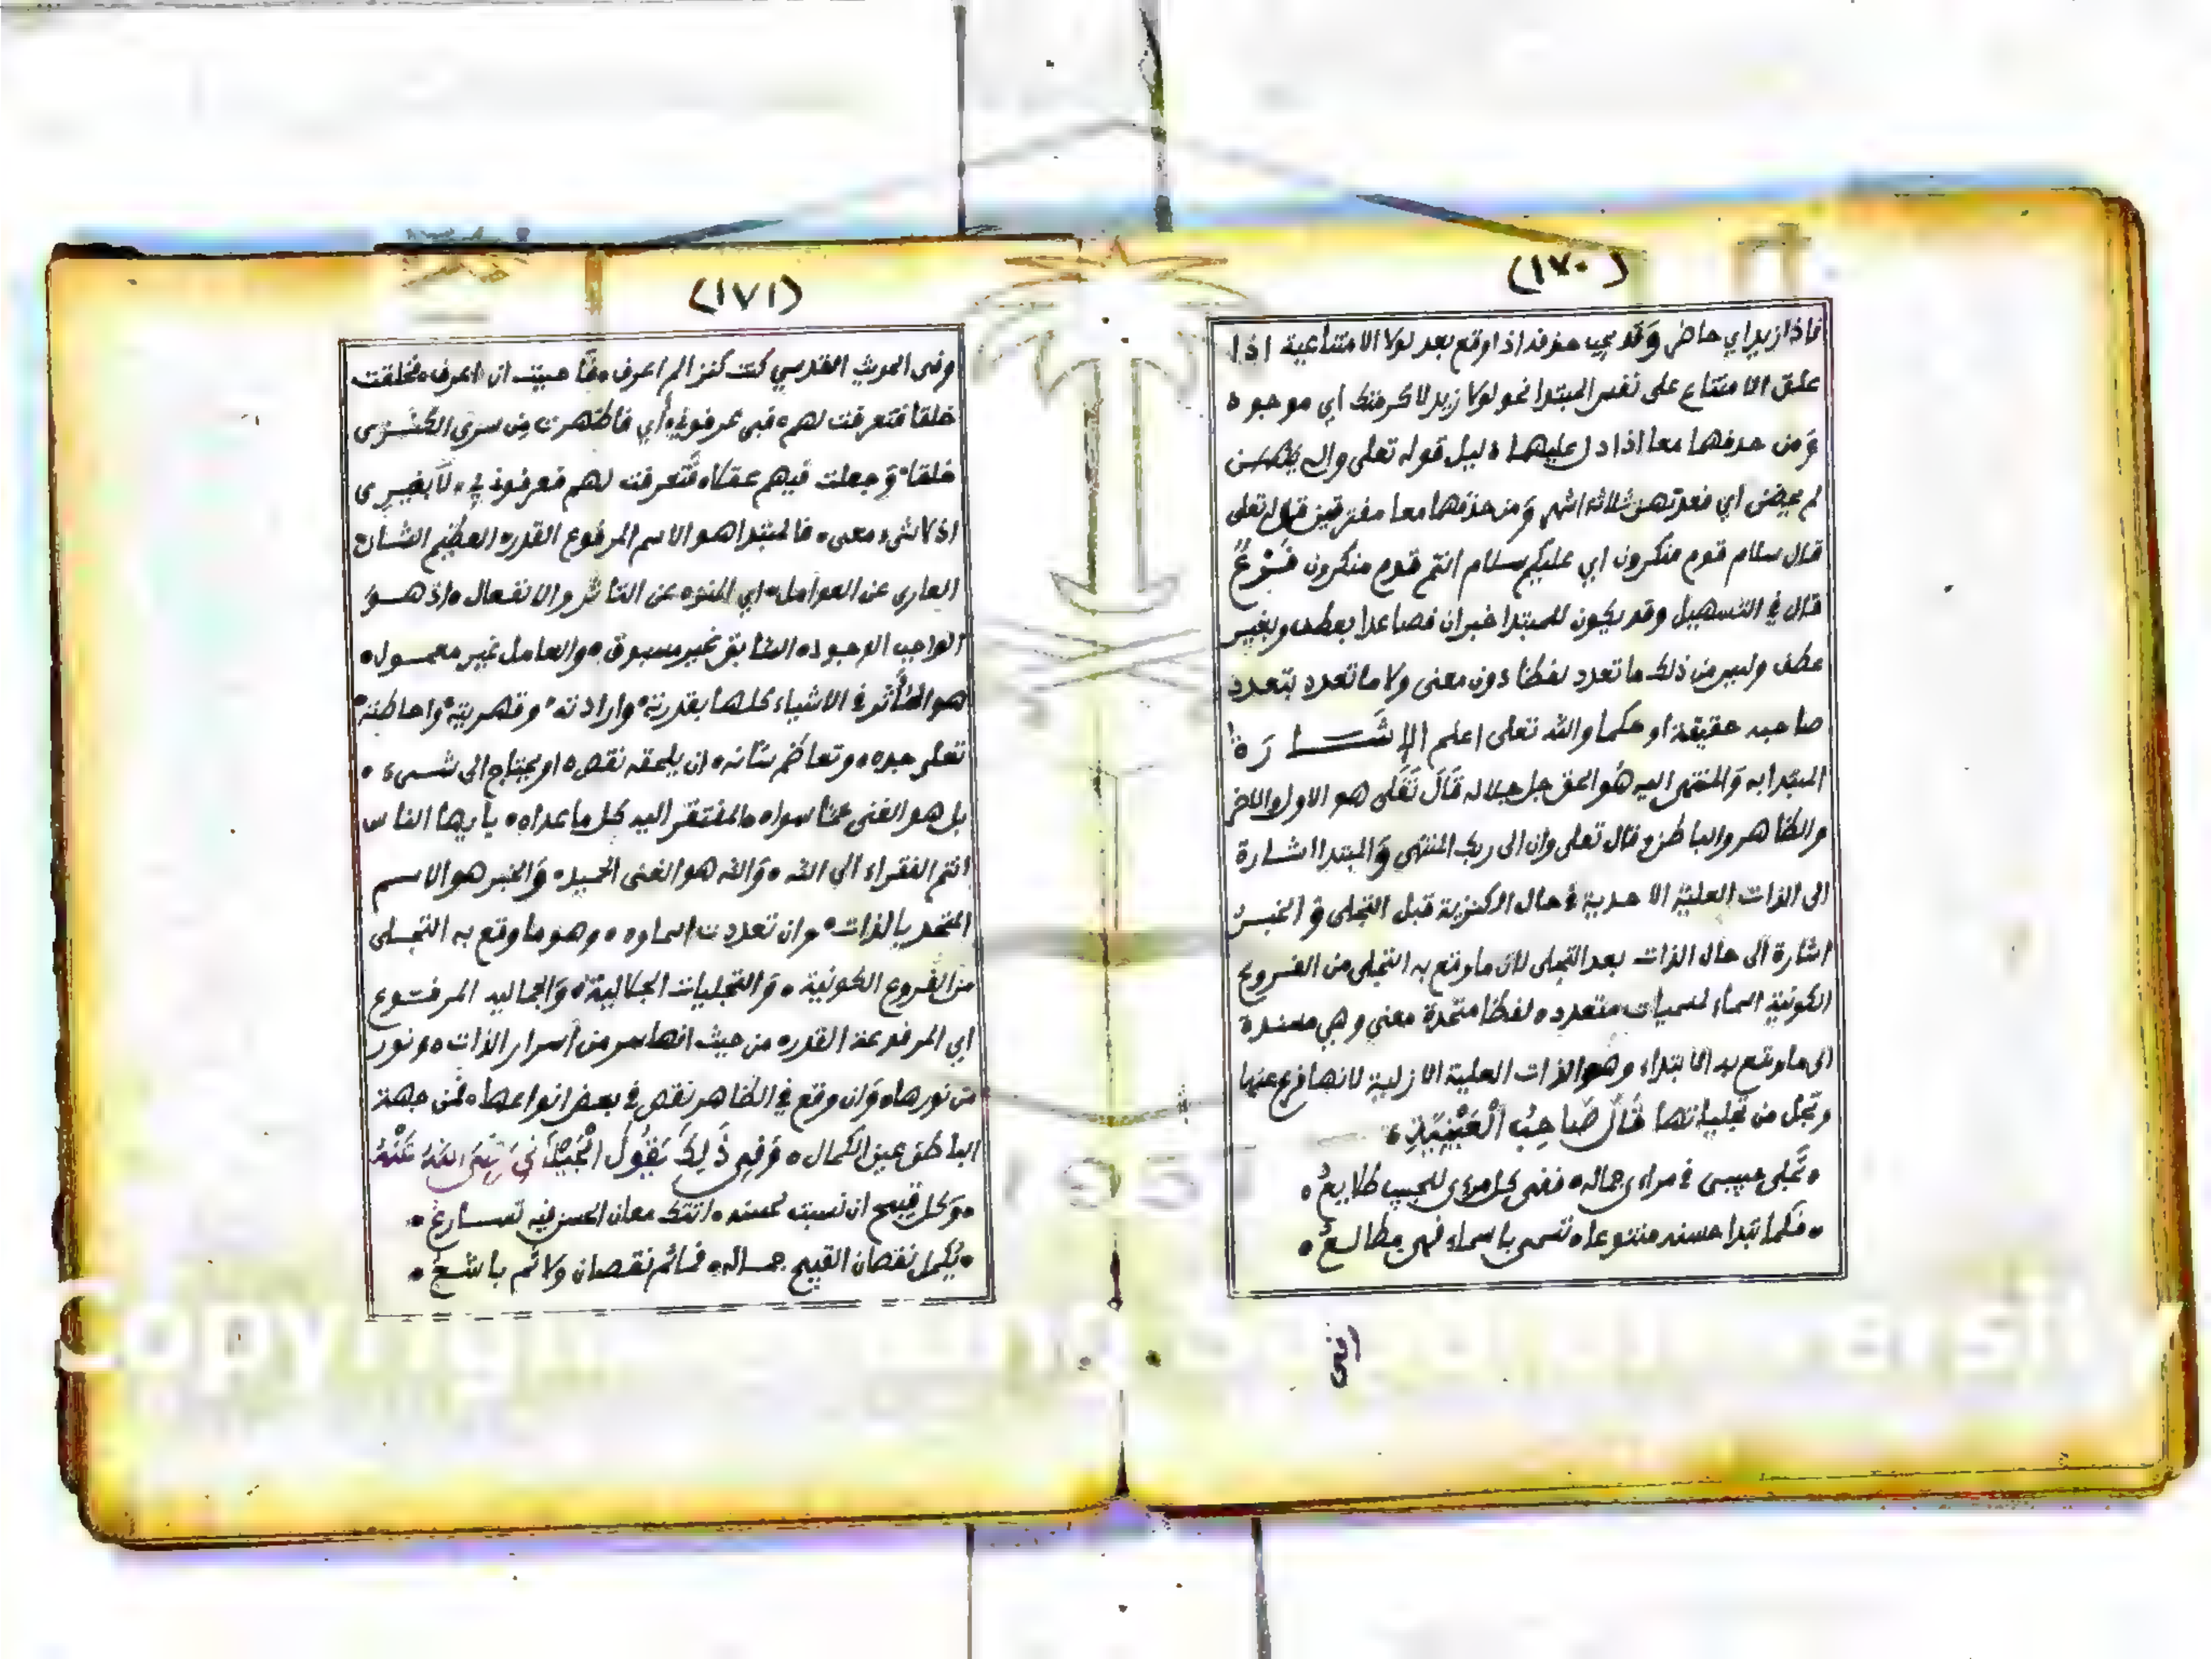 (١٧٠)
فاذا زيد اي حاضر وَقد يجب حذفه اذا وقع بعد لولا الامتناعية اذا
علق الامتناع على نفس المبتدا نحو لولا زيد لاكرمتك اي موجود
وَمن حذفهما معا اذا دل عليهما دليل قوله تعلى والى يئسن
لم يحضن اي فعدتهن ثلاثة اشهر وَمن حذفهما معا مفترقين قوله تعلى
قال سلام قوم منكرون اي عليكم سلام انتم قوم منكرون فَرْعٌ
قال في التسهيل وقد يكون للمبتدا خبران فصاعدا بعطف وبغير
عطف وليس من ذلك ما تعدد لفظا دون معنى ولا ما تعدد بتعدد
صاحبه حقيقة او حكما والله تعلى اعلم الإشَــارَة
المبتدا به وَالمنتهى اليه هُو الحق جل جلاله قَالَ تَعَلى هو الاول والاخر
والظاهر والباطن وقال تعلى وان الى ربك المنتهى وَالمبتدا اشارة
الى الذات العلية الاحدية في حال الكنزية قبل التجلى وَالخبر
اشارة الى حال الذات بعد التجلى لان ما وقع به التجلى من الفروع
الكونية اسماء لمسميات متعددة لفظا متحدة معنى وهي مسندة
الى ما وقع به الابتداء وهو الذات العلية الازلية لانها فرع عنها
وتجل من تجلياتها قَالَ صَاحِبُ الْعَيْنِيَّةِ
تَجلى حبيبى في مراءى جماله ففى كل مرءى للحبيب طلايعُ
فلما تبدا حسنه متنوعا تسمى باسماء فهى مطالعُ
وفى
(١٧١)
وفى الحديث القدسي كنت كنزا لم اعرف فأحببت ان اعرف فخلقت
خلقا فتعرفت لهم فبى عرفوني أي فاظهرت من سرى الكنزى
خلقا وَجعلت فيهم عقلا فتعرفت لهم فعرفوني بي لا بغيرى
اذ لا شىء معى فالمبتدا هو الاسم المرفوع القدر العظيم الشان
العارى عن العوامل اي المنزه عن التاثر والانفعال اذ هو
الواجب الوجود السابق غير مسبوق والعامل غير معمول
هو المأثر في الاشياء كلها بقدرته وارادته وقهريته واحاطته
تعلى جده وتعاظم شانه ان يلحقه نقص او يحتاج الى شىء
بل هو الغنى عما سواه المفتقر اليه كل ما عداه يأيها الناس
انتم الفقراء الى الله وَالله هو الغنى الحميد وَالخبر هو الاسم
المتحد بالذات وان تعددت اسماوه وهو ما وقع به التجلى
من الفروع الكونية وَالتجليات الجلالية وَالجماليه المرفوع
اي المرفوعة القدر من حيث انها سر من أسرار الذات ونور
من نورها وَان وقع في الظاهر نقص في بعض انواعها فمن جهة
الباطن عين الكمال وَفِى ذَلِكَ يَقُولُ الْجِيْلَانِي رَضِىَ اللهُ عَنْهُ
وَكل قبيح ان نسبت لحسنه اتتك معان الحسن فيه تسارعُ
يُكمل نقصان القبيح جماله فما ثم نقصان ولا ثم باشعُ
Copyright © King Saud University
1957